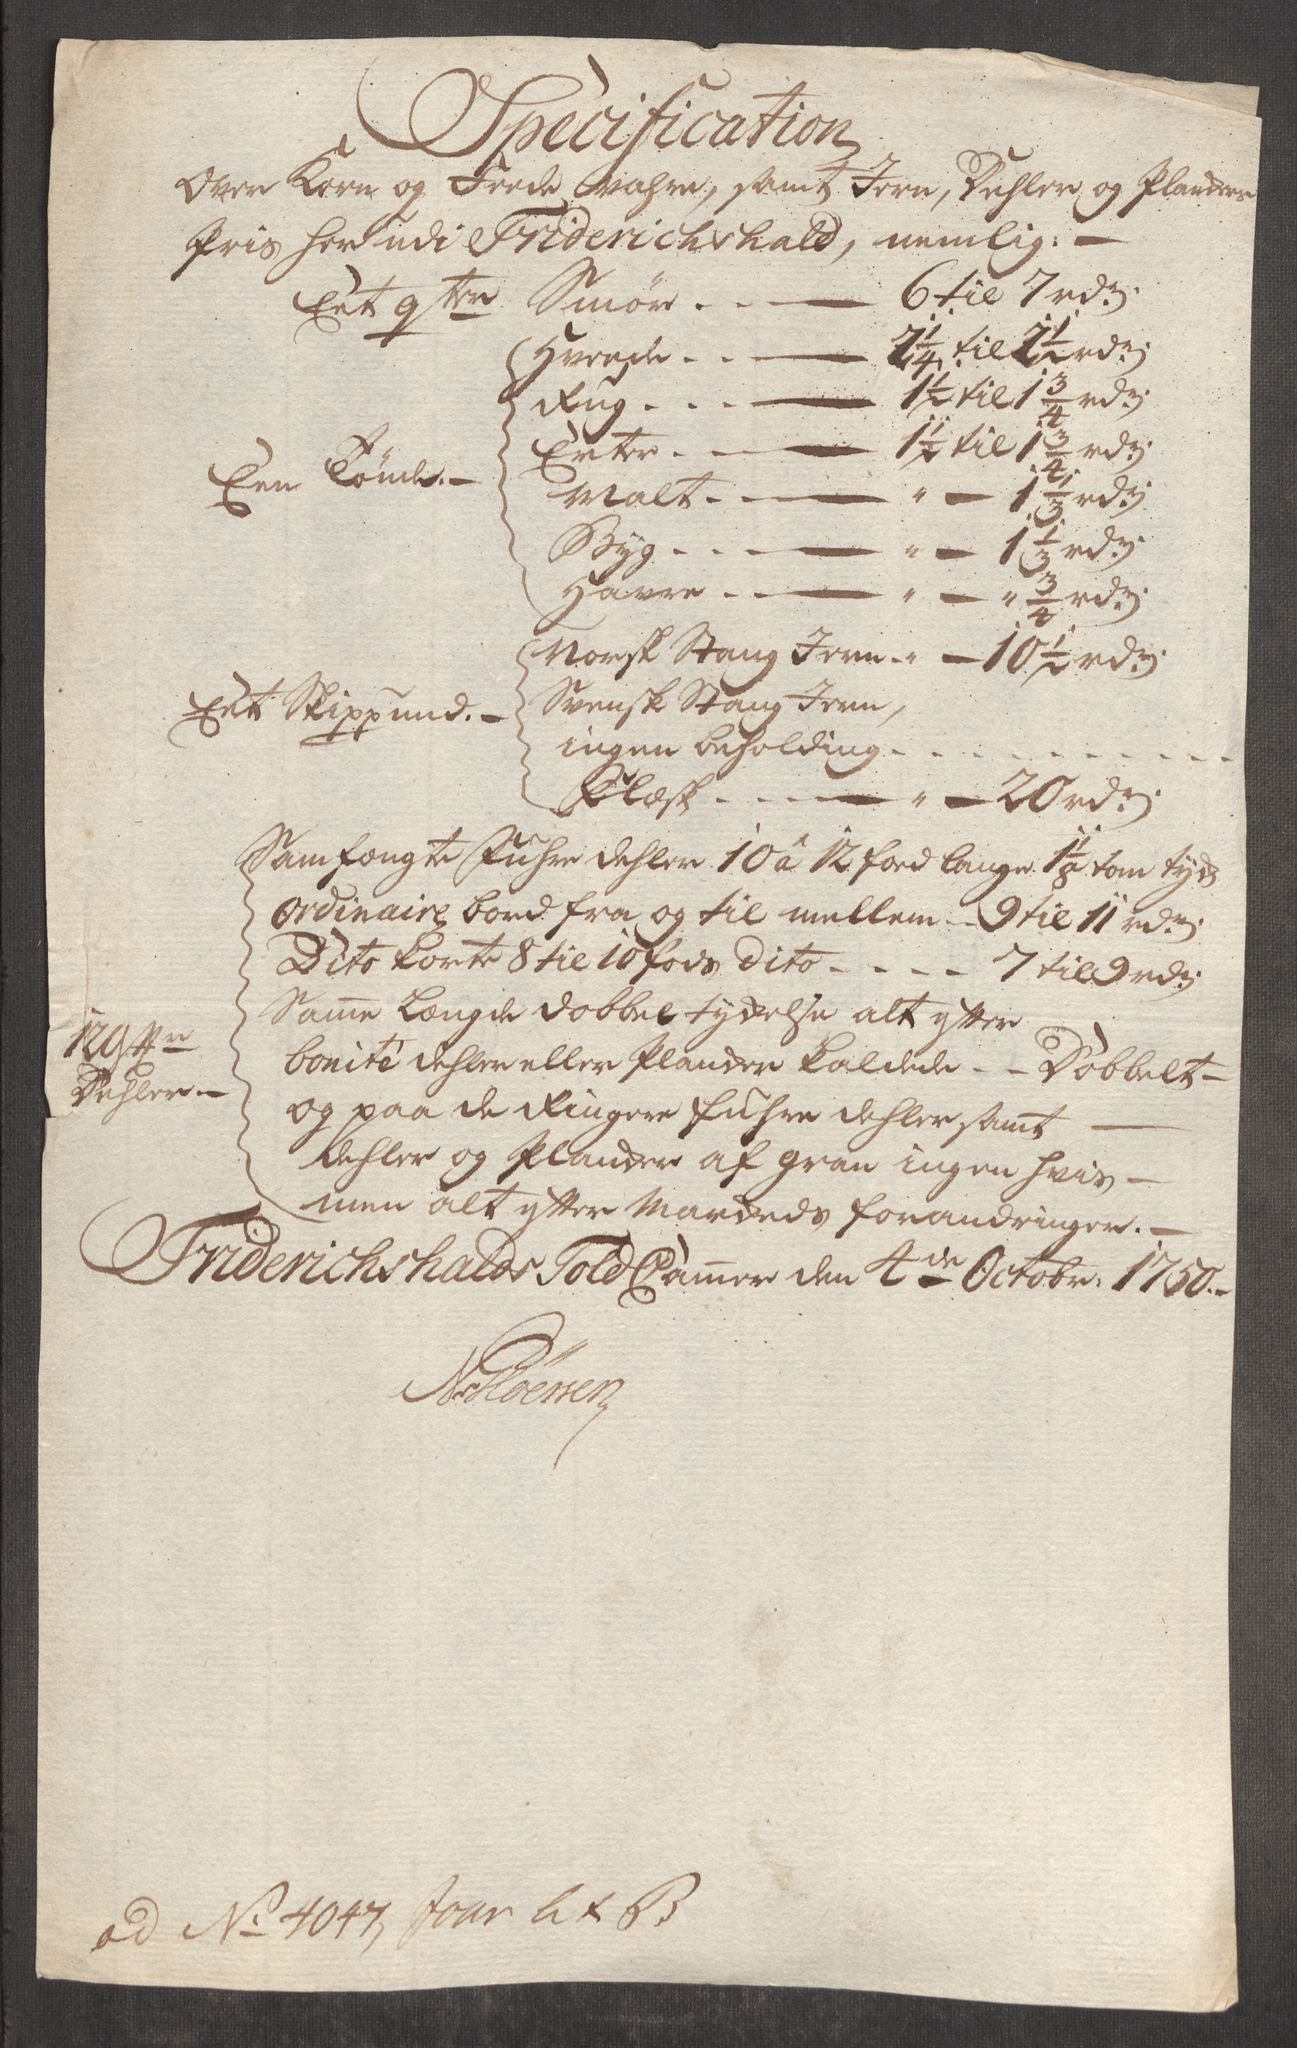 Specification
Over Korn og Feede Wahre, samt Jern, Dehler og Planckers
Pris her udi Friderichshald, nemlig: —
Eet qtr Smør . . — 6 til 7 rdr:
Hvede . . — 2 1/4 til 2 1/2 rdr:
Rug . . . — 1 1/2 til 1 3/4 rdr:
Erter . . — 1 1/2 til 1 3/4 rdr:
Een Tønde. — Malt . . — " — 1 1/3 rdr:
Byg . . . — " — 1 1/3 rdr:
Havre . . — " — " 3/4 rdr:
Norsk Stang Jern . " — 10 1/2 rdr:
Eet Skippund. — Svensk Stang Jern,
ingen beholding . . . . . . . . . . .
Flæsk . . . — " — 20 rdr:
Samfængte Fuhre dehler 10 a 12 foed lange 1 1/8 tom tyck
ordinaire bord fra og til mellem . . 9 til 11 rdr:
Dito korte 8 til 10 fods dito . . . . 7 til 9 rdr:
Samme Længde dobbel tyckelse alt effter
12 qtr bonité dehler eller Plancker kaldede . . Dobbelt —
Dehler. — og paa de Ringere Fuhre dehler samt —
dehler og Plancker af gran ingen hvis —
men alt effter Marckeds forandringer. —
Friderichshalds Told Camer den 4de Octobr: 1750. —
ad No: 4047, Jour B